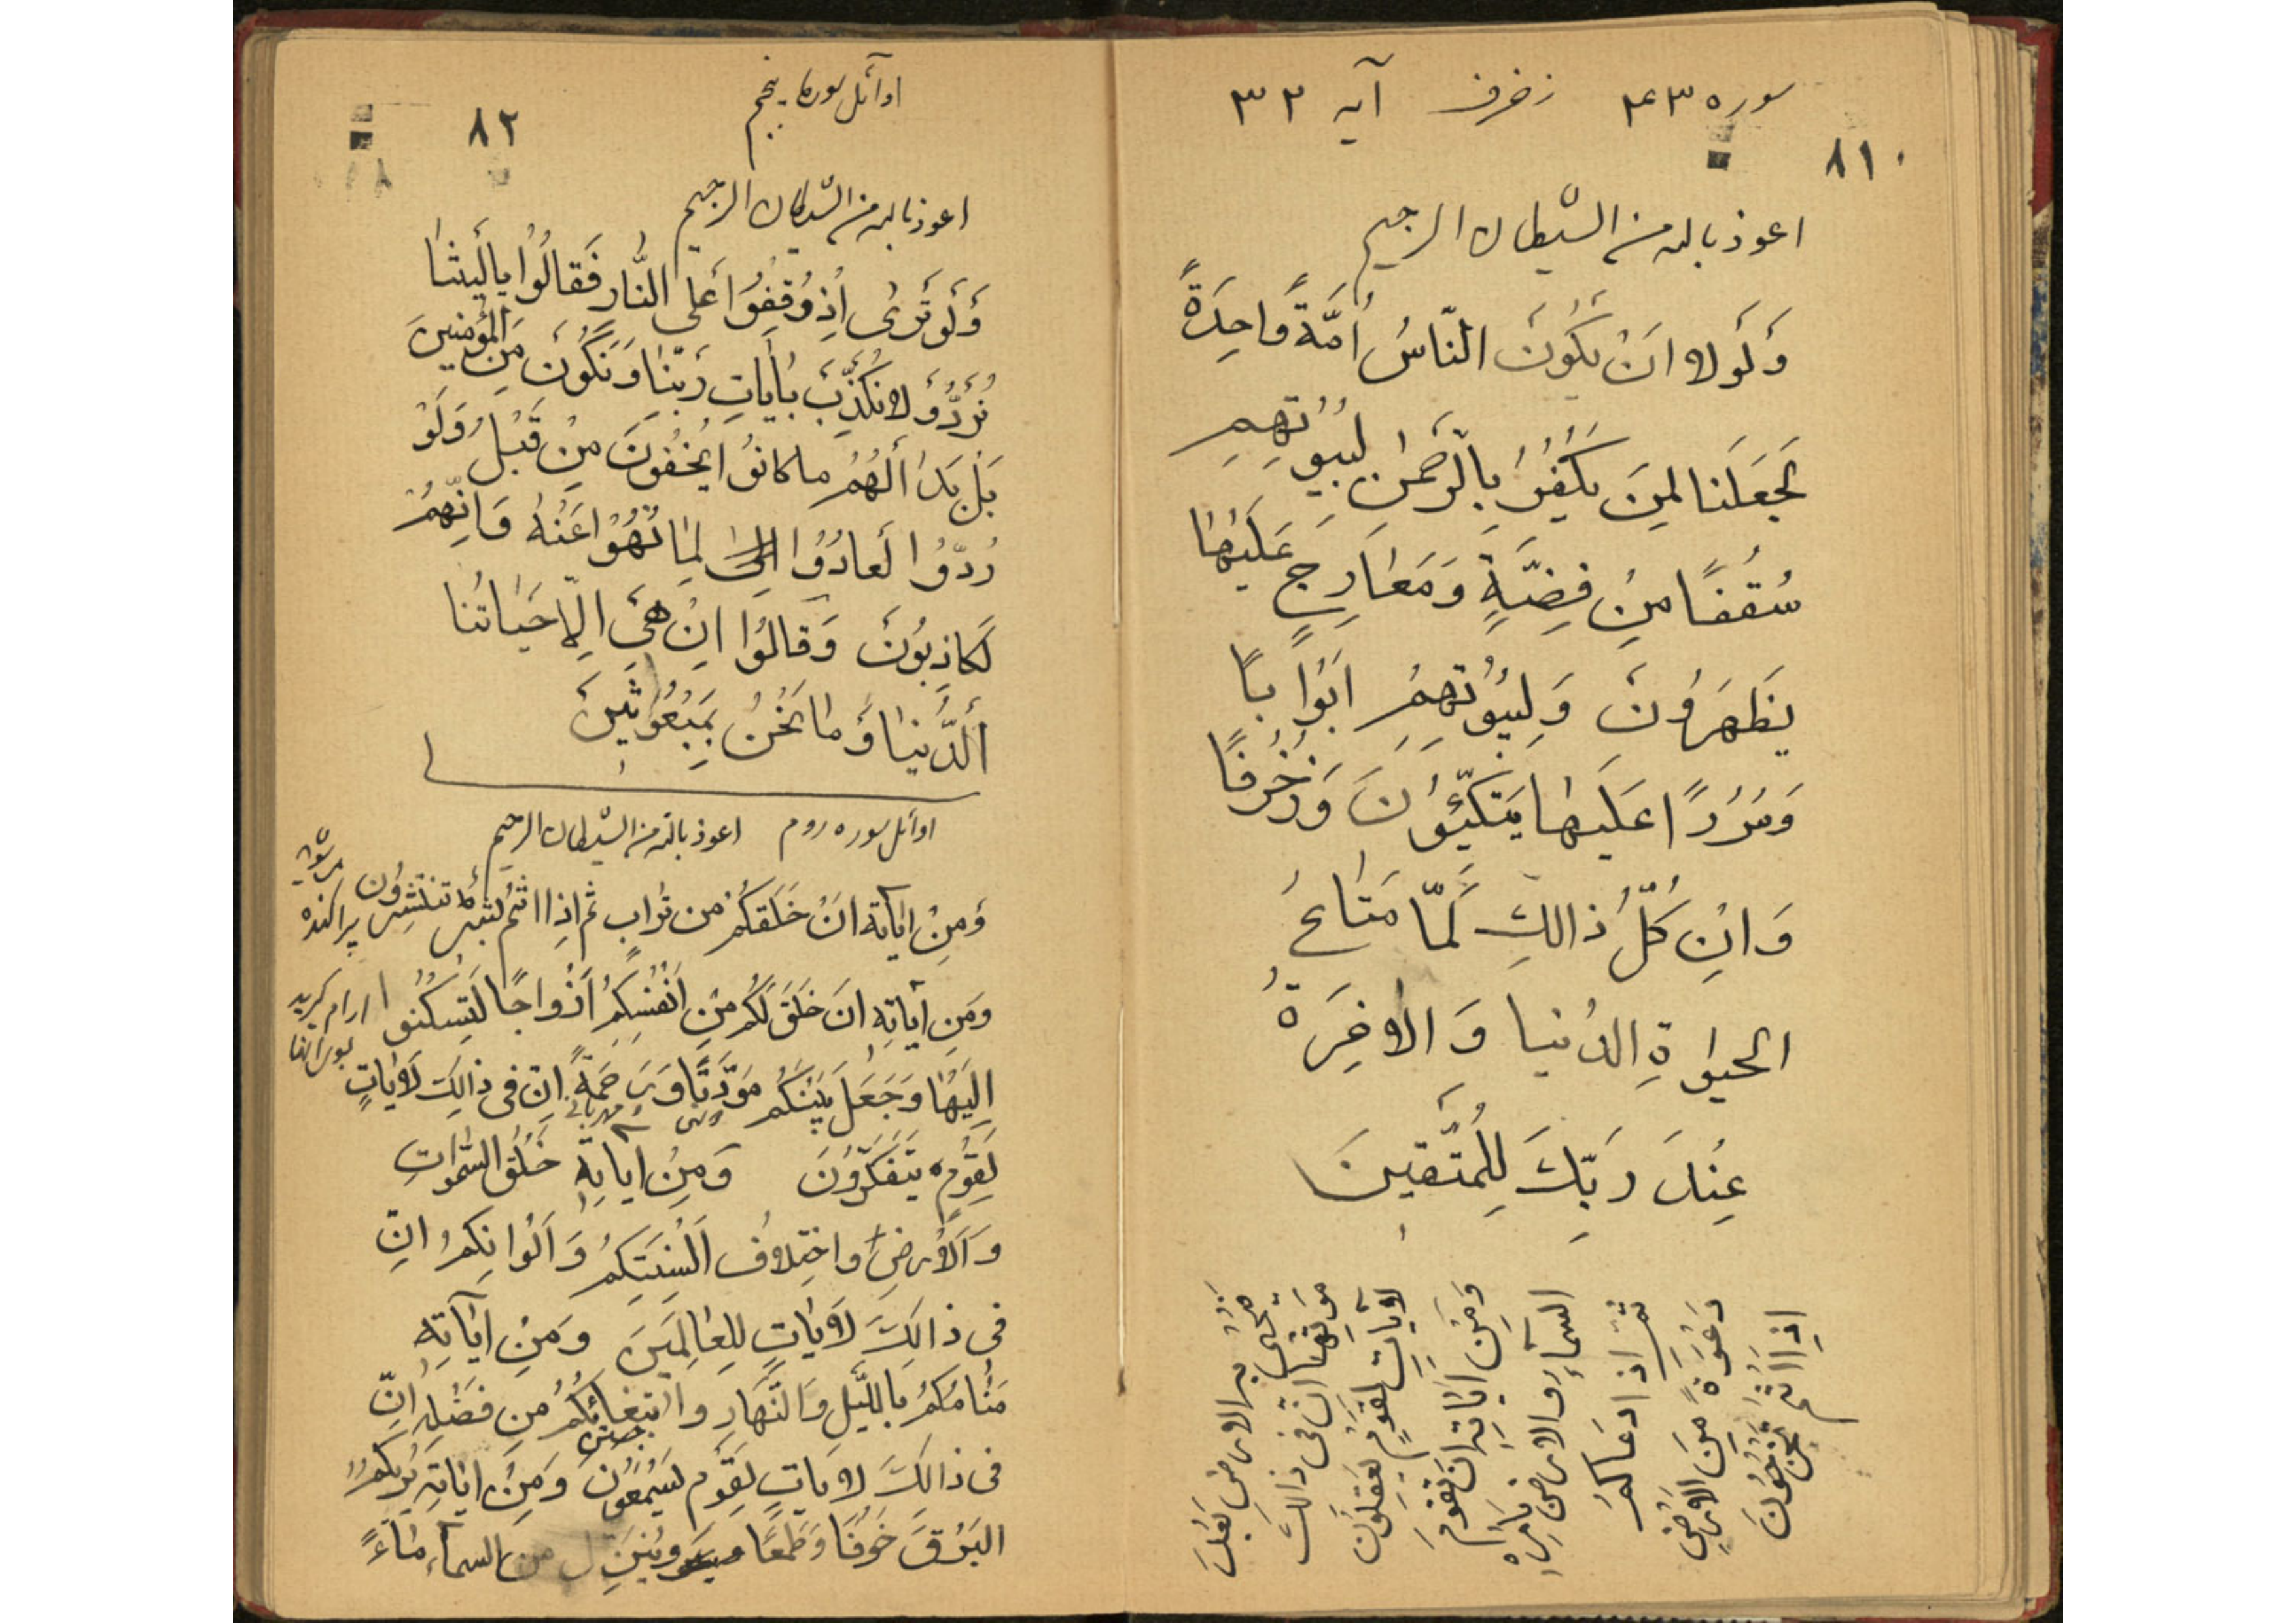 سوره ۴۳ زخرف آیه ۳۳
۸۱
اعوذ بالله من الشیطان الرجیم
وَلَولا انَ یَکُونَ النّاسُ اُمَّةً واحِدَةً
لَجَعَلَنا لِمَن یَکفُرُ بِالرَّحمٰنِ لبُیوُتِهِم
سُقُفًا مِن فِضَّةٍ وَمَعٰارِجٍ عَلَیهٰا
یَظهَروُنَ وَلِبُیوُتِهِم ابَوٰابًا
وَسُرُرًا عَلَیهٰا یَتَکِّئوُنَ وَزُخرُفًا
وَانِ کُلُّ ذالِكِ لَمّا مَتٰاعُ
الحیوٰةِ الدُنیا وَالاخِرَةُ
عِندَ رَبِّكَ لِلمُتَّقینَ
فَیُحیٰ به الارضِ بَعدَ
مَوتِهٰا انّ فی ذالِكَ
لآیاتٍ لِقَومٍ یَعقِلوُن
وَمِن ایٰاتِهِ ان تَقومَ
السمآءِ والارض بِامرِهِ
ثُمّ اذا دَعٰاکُم
دَعوَةً مِنَ الارضِ
اِذا انتُم تخرُجوُنَ
اوآئل سوره پنجم
۸۲
اعوذ بالله من الشیطان الرجیم
وَلَو تَرىٰ اِذ وُقِفوُا عَلی النّارِ فَقالُوا یا لَیتَنٰا
نُرَدُّ وَلا نُکَذِّبَ بِأیٰاتِ رَبِّنٰا وَنَکُونَ مِنَ المُؤمِنینَ
بَل بَدا لَهُم ما کانوُا یُخفُونَ مِن قَبلُ وَلَو
رُدّوُا لَعادُوُا لِمٰا نُهُوا عَنهُ وَانِّهُم
لَکاذِبوُنَ وَقالُوا اِن هِیَ اِلّا حَیٰاتُنا
اَلدُّنیٰا وَمٰا نَحنُ بِمَبعُوثینَ
اوآئل سوره روم اعوذ بالله من الشیطان الرجیم
وَمِن ایٰاتِه انَ خَلَقَکُم من تُرابٍ ثُم اِذا انتُم بَشَرٌ تنتَشِروُن پراکنده میشوید
وَمَن ایٰاتِهِ انَ خَلَقَ لَکُم مِن اَنفُسِکُم اَزواجًا لَتِسکُنوا ارام گیرید بسوی آنها
اِلَیهٰا وَجَعَلَ بَینَکُم مَوَدَّتًا وَرَحمَةً انّ فی ذالِكَ لَایٰاتٍ
مهربانی
لِقَومٍ یَتَفَکَّروُنَ وَمِن ایٰاتِهِ خَلقُ السَّمٰواتِ
وَالاَرضِ واختِلافُ اَلسِنَتِکُم وَاَلوٰانِکُم انّ
فی ذالِكَ لَایٰاتٍ لِلعٰالِمَینَ وَمِن ایٰاتِهِ
مَنامُکُم بِاللَّیلِ وَالنَّهارِ وابتِغائکُم مِن فَضلِهِ اِنّ
فی ذالِكَ لایَاتٍ لِقَومٍ لیَسمَعوُن وَمِن ایٰاتِهِ یُریکُمُ
البَرقَ خَوفًا وَطَمَعًا ویُنَزِل من السمآء مٰاءً